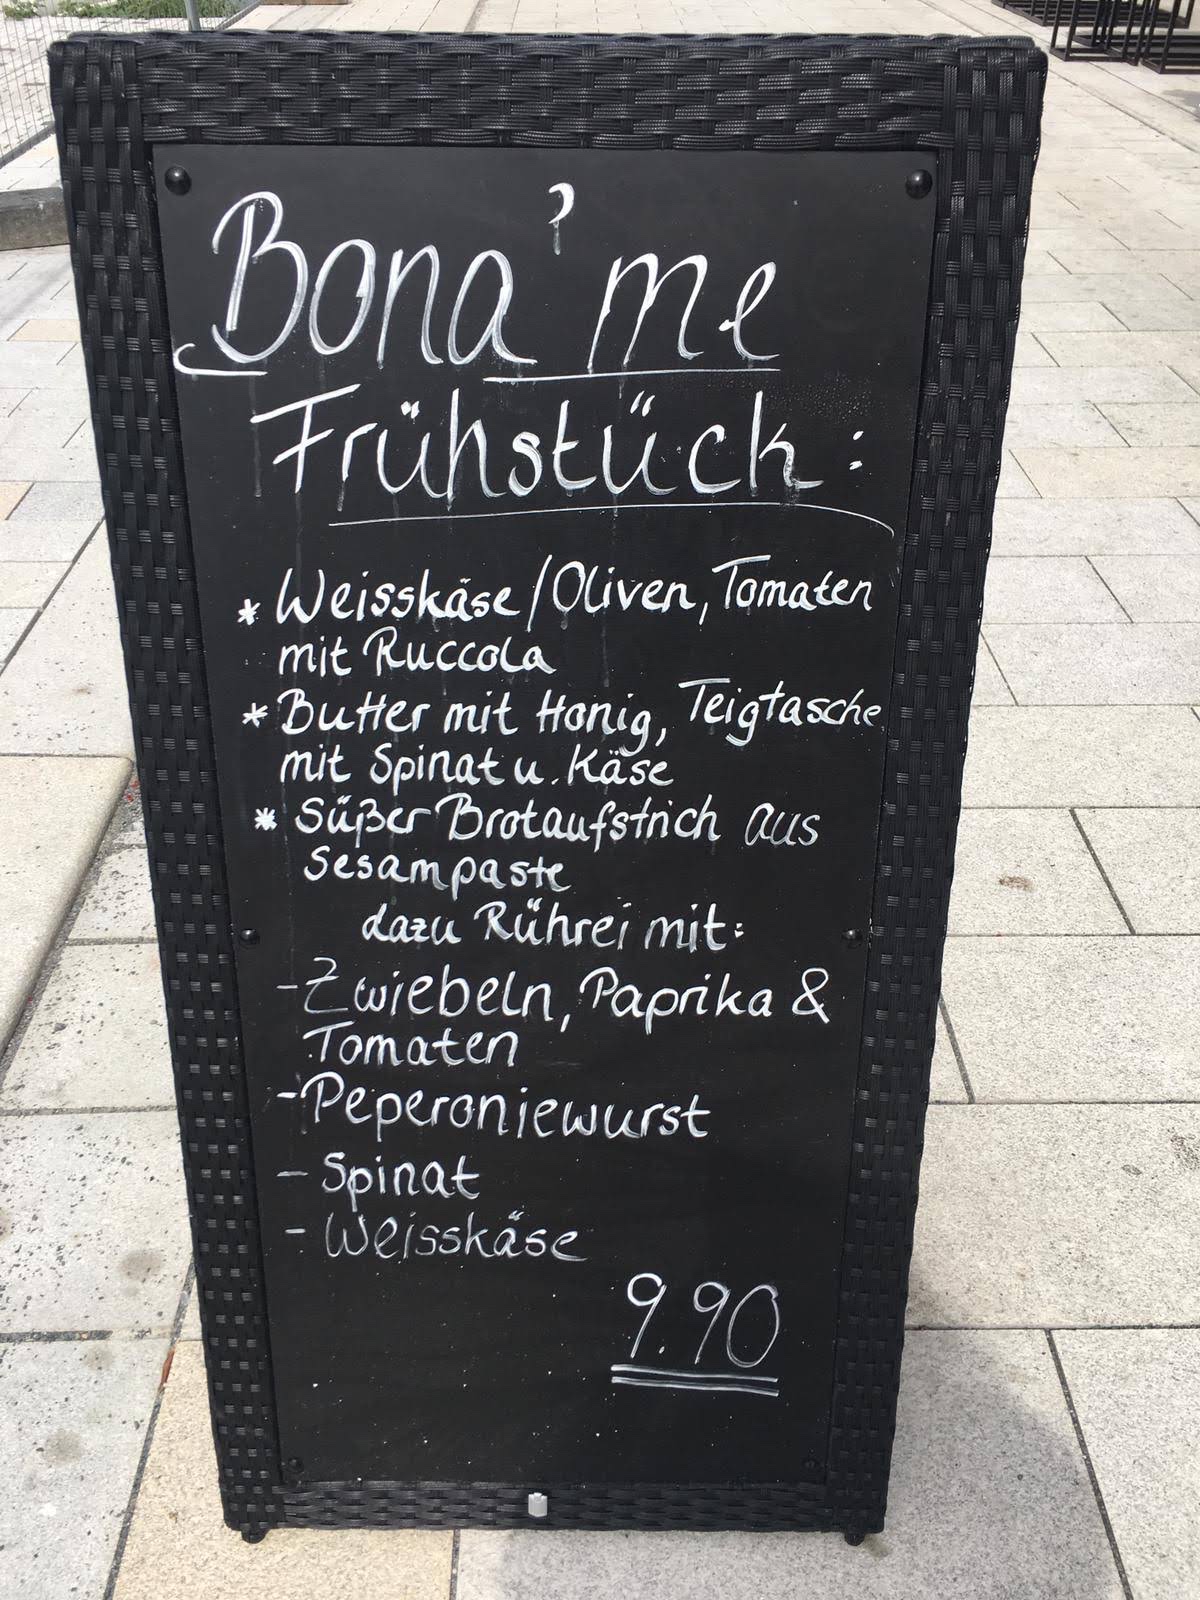 Bona'me
Frühstück:
* Weisskäse/Oliven, Tomaten
mit Ruccola
* Butter mit Honig, Teigtasche
mit Spinat u. Käse
* Süßer Brotaufstrich aus
Sesampaste
dazu Rührei mit:
- Zwiebeln, Paprika &
Tomaten
- Peperoniewurst
- Spinat
- Weisskäse
9.90